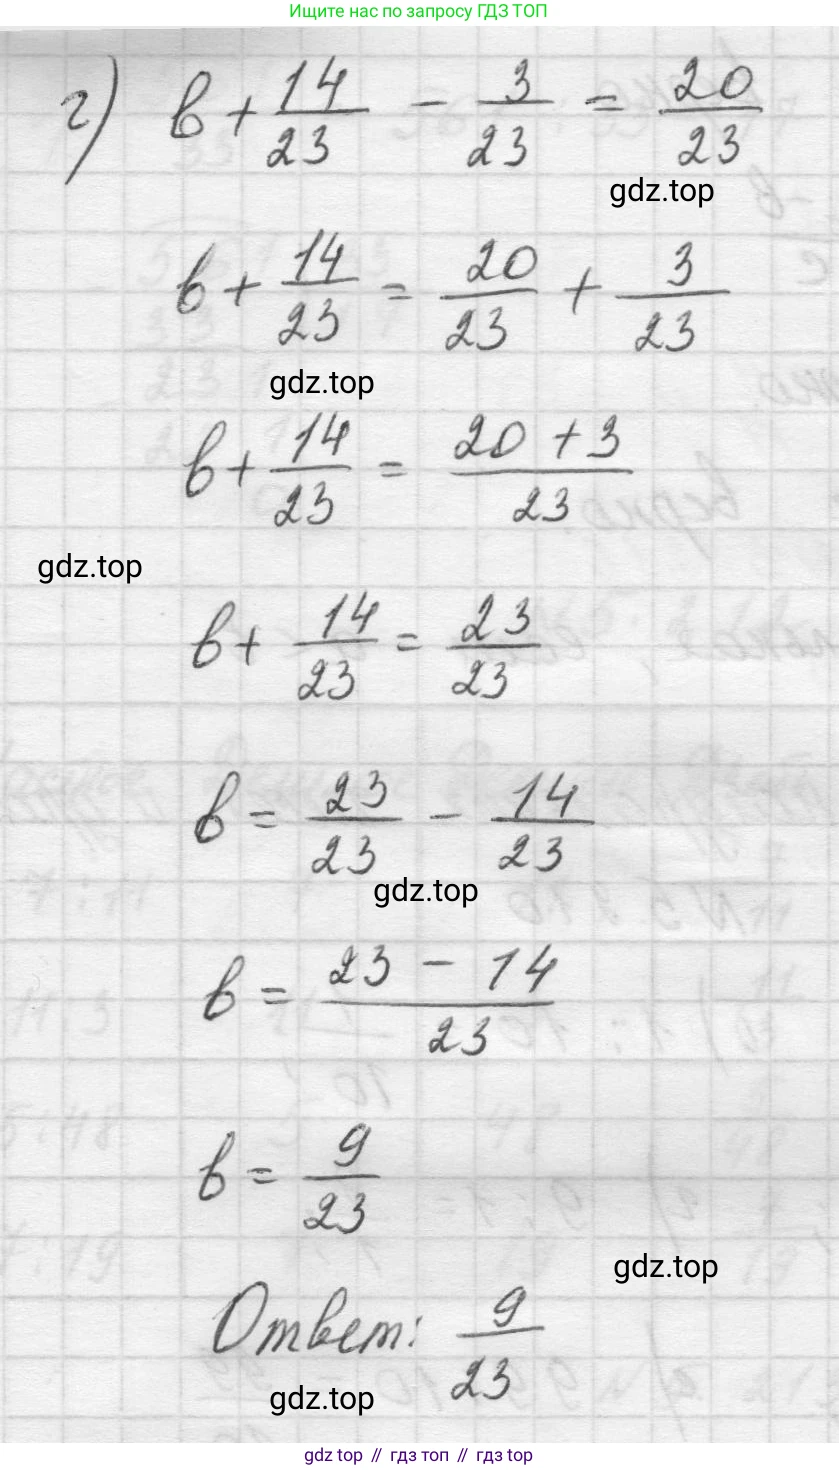 Ищите нас по запросу ГДЗ ТОП
г) b + 14/23 - 3/23 = 20/23
gdz.top
b + 14/23 = 20/23 + 3/23
gdz.top
b + 14/23 = (20 + 3)/23
gdz.top
b + 14/23 = 23/23
b = 23/23 - 14/23
gdz.top
b = (23 - 14)/23
b = 9/23
gdz.top
Ответ: 9/23
gdz.top
gdz top // гдз топ // гдз top